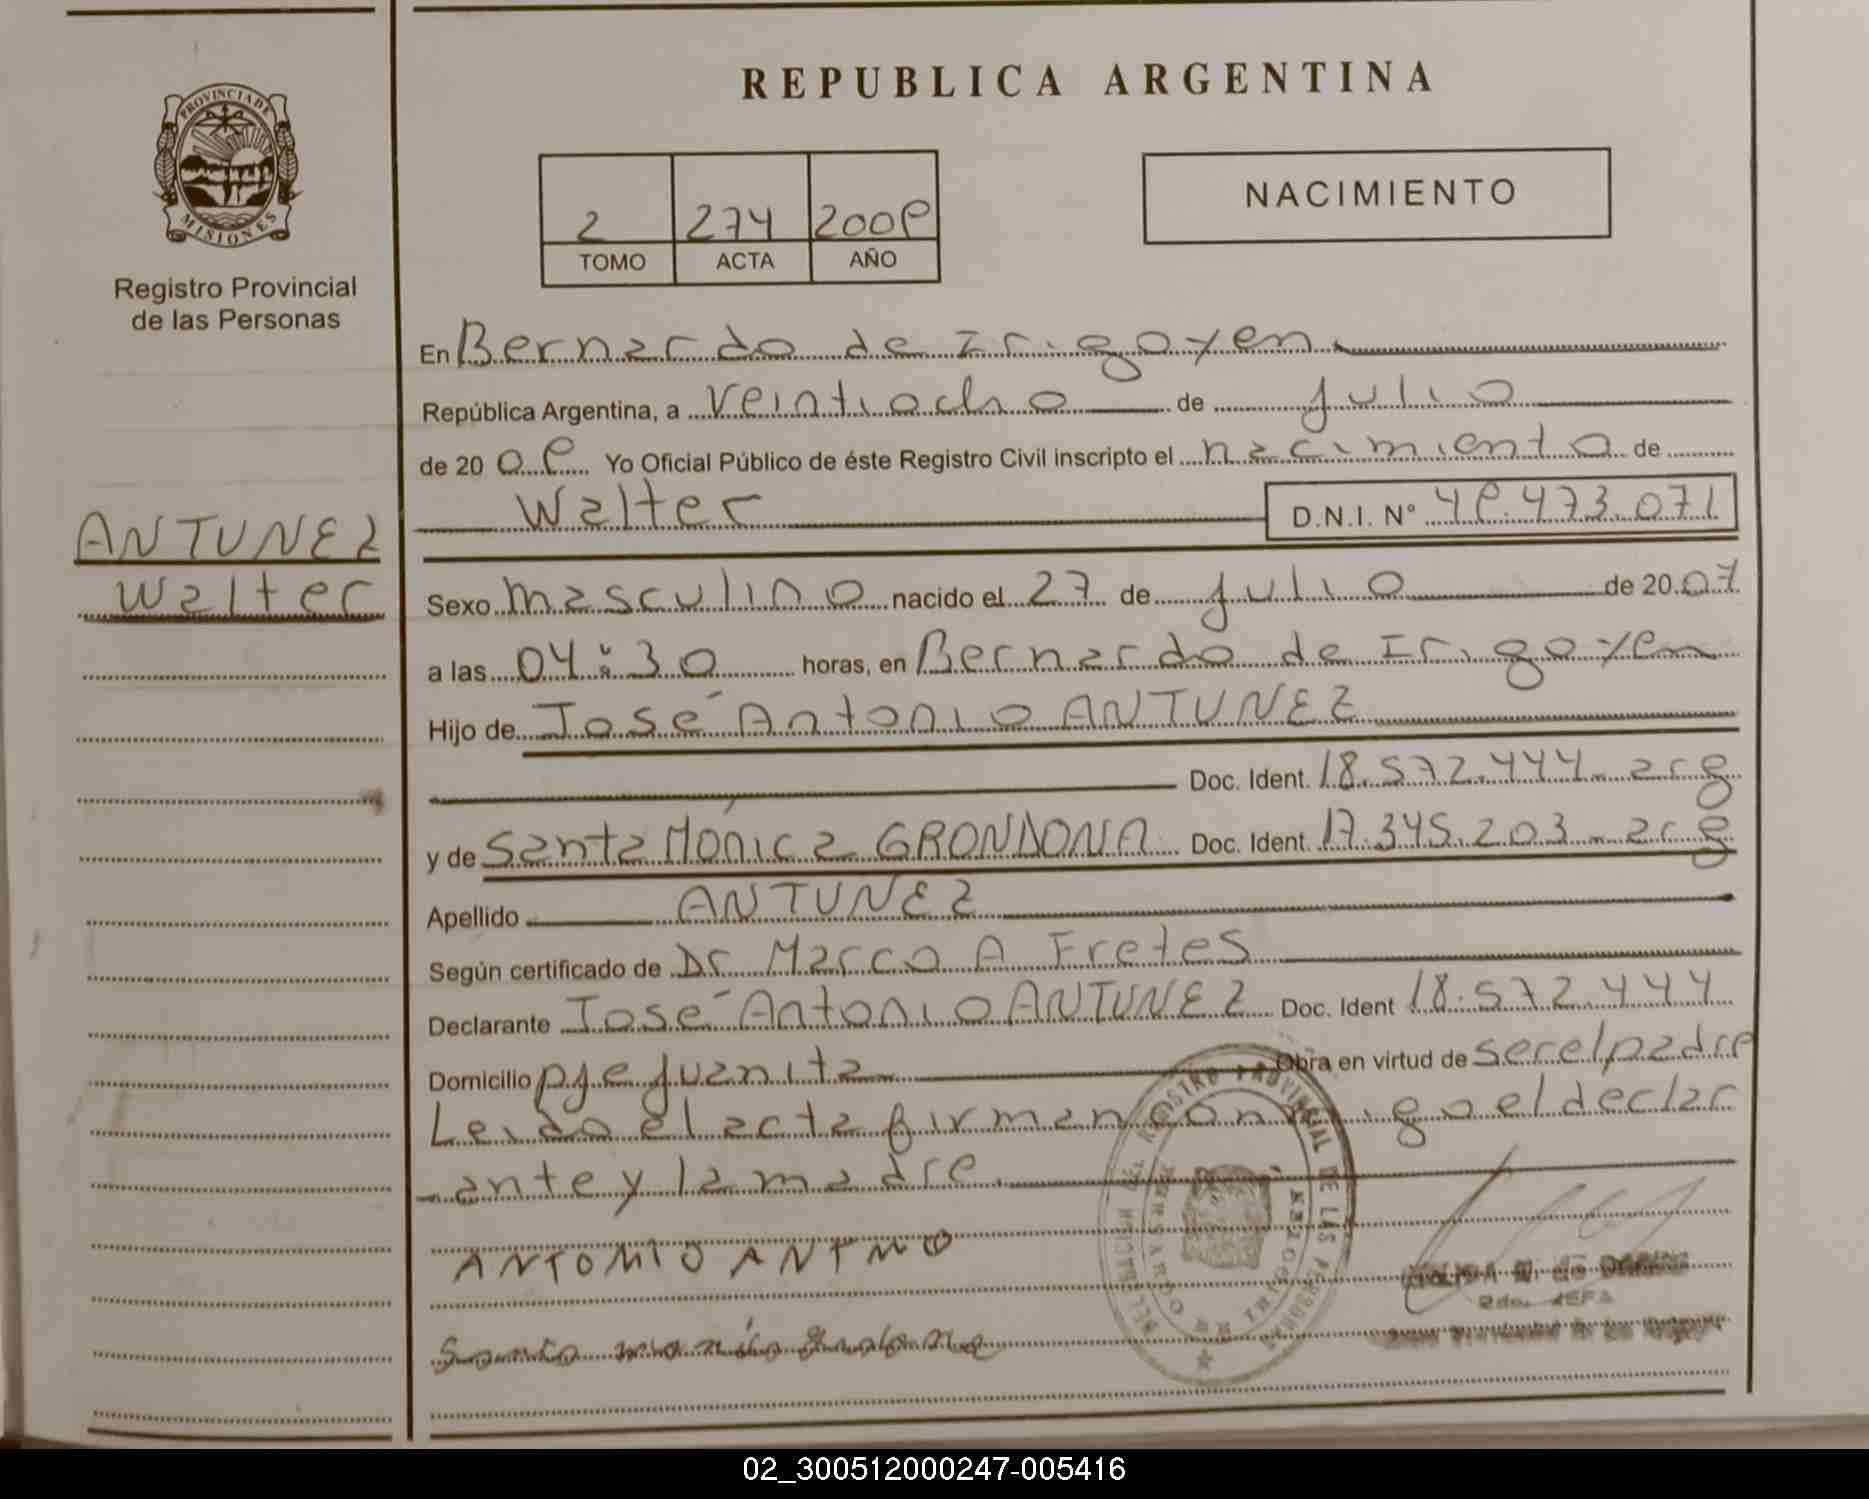 REPUBLICA ARGENTINA
PROVINCIA DE
MISIONES
Registro Provincial
de las Personas
2 274 2008
TOMO ACTA AÑO
NACIMIENTO
En Bernardo de Irigoyen
República Argentina, a veintiocho de julio
de 20 08 Yo Oficial Público de éste Registro Civil inscripto el nacimiento de
Walter D.N.I. Nº 48.473.071
ANTUNEZ
Walter
Sexo masculino nacido el 27 de julio de 20 07
a las 04:30 horas, en Bernardo de Irigoyen
Hijo de José Antonio ANTUNEZ
Doc. Ident. 18.572.444 - arg
y de Santa Mónica GRONDONA Doc. Ident. 17.345.203 - arg
Apellido ANTUNEZ
Según certificado de Dr Marco A Fretes
Declarante José Antonio ANTUNEZ Doc. Ident 18.572.444
Domicilio pje Juanita Obra en virtud de ser el padre
Leido el acta firman conmigo el declar
ante y la madre
ANTONIO
REGISTRO PROVINCIAL DE LAS PERSONAS
2da. JEFA
02_300512000247-005416